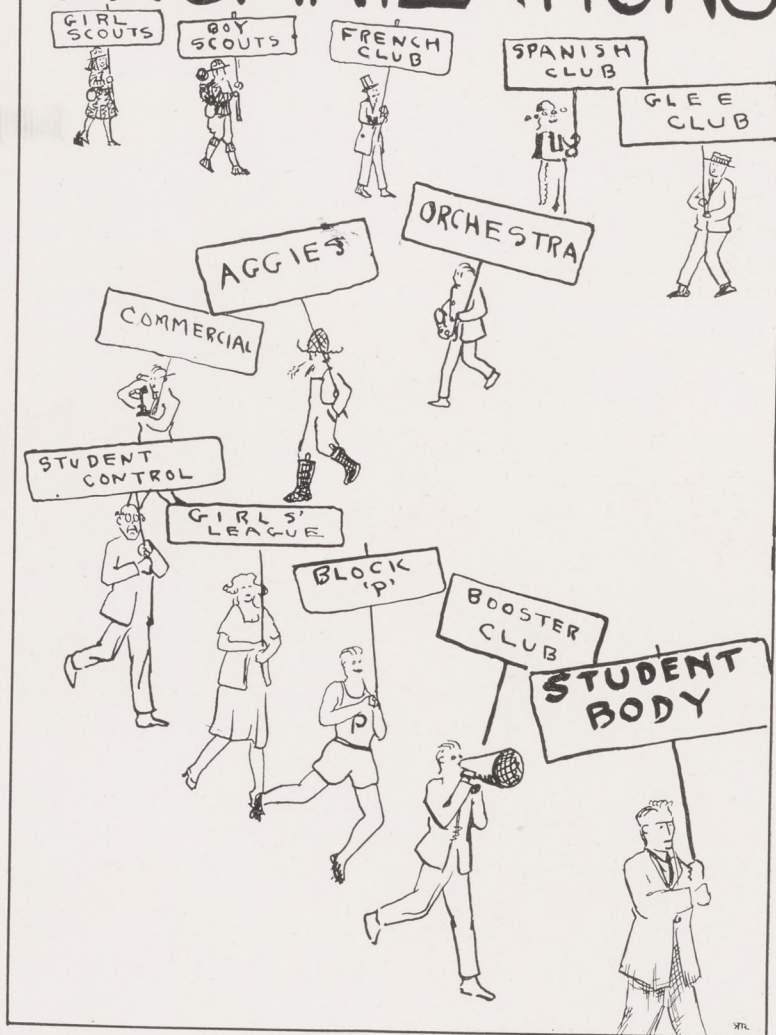 GIRL
SCOUTS
BOY
SCOUTS
FRENCH
CLUB
SPANISH
CLUB
GLEE
CLUB
ORCHESTRA
AGGIES
COMMERCIAL
STUDENT
CONTROL
GIRLS'
LEAGUE
BLOCK
'P'
P
BOOSTER
CLUB
STUDENT
BODY